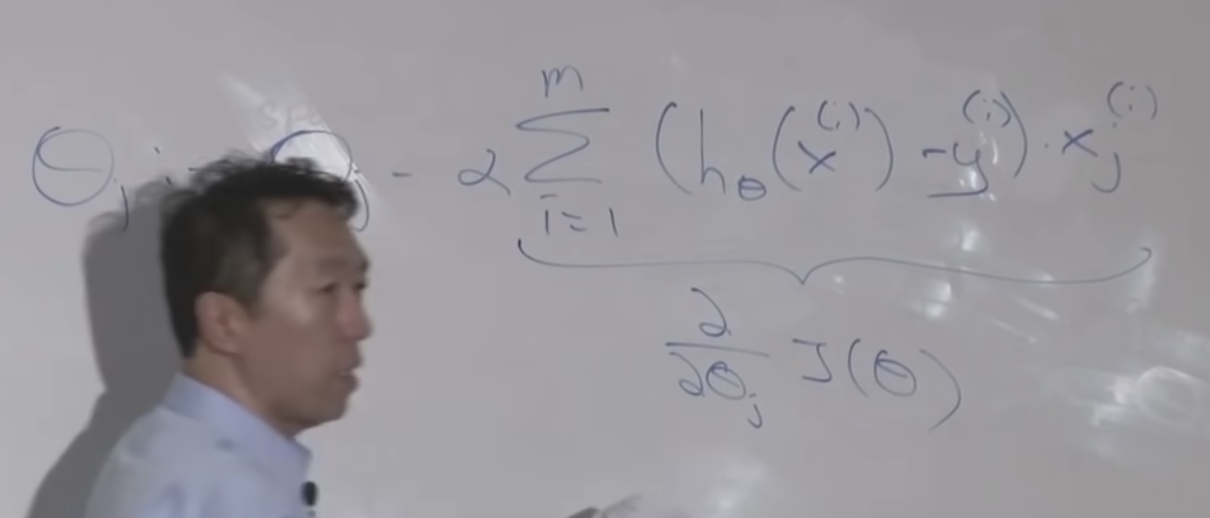 θj := θj - α ∑_{i=1}^{m} (hθ(x^(i)) - y^(i)) · xj^(i)
∂/∂θj J(θ)